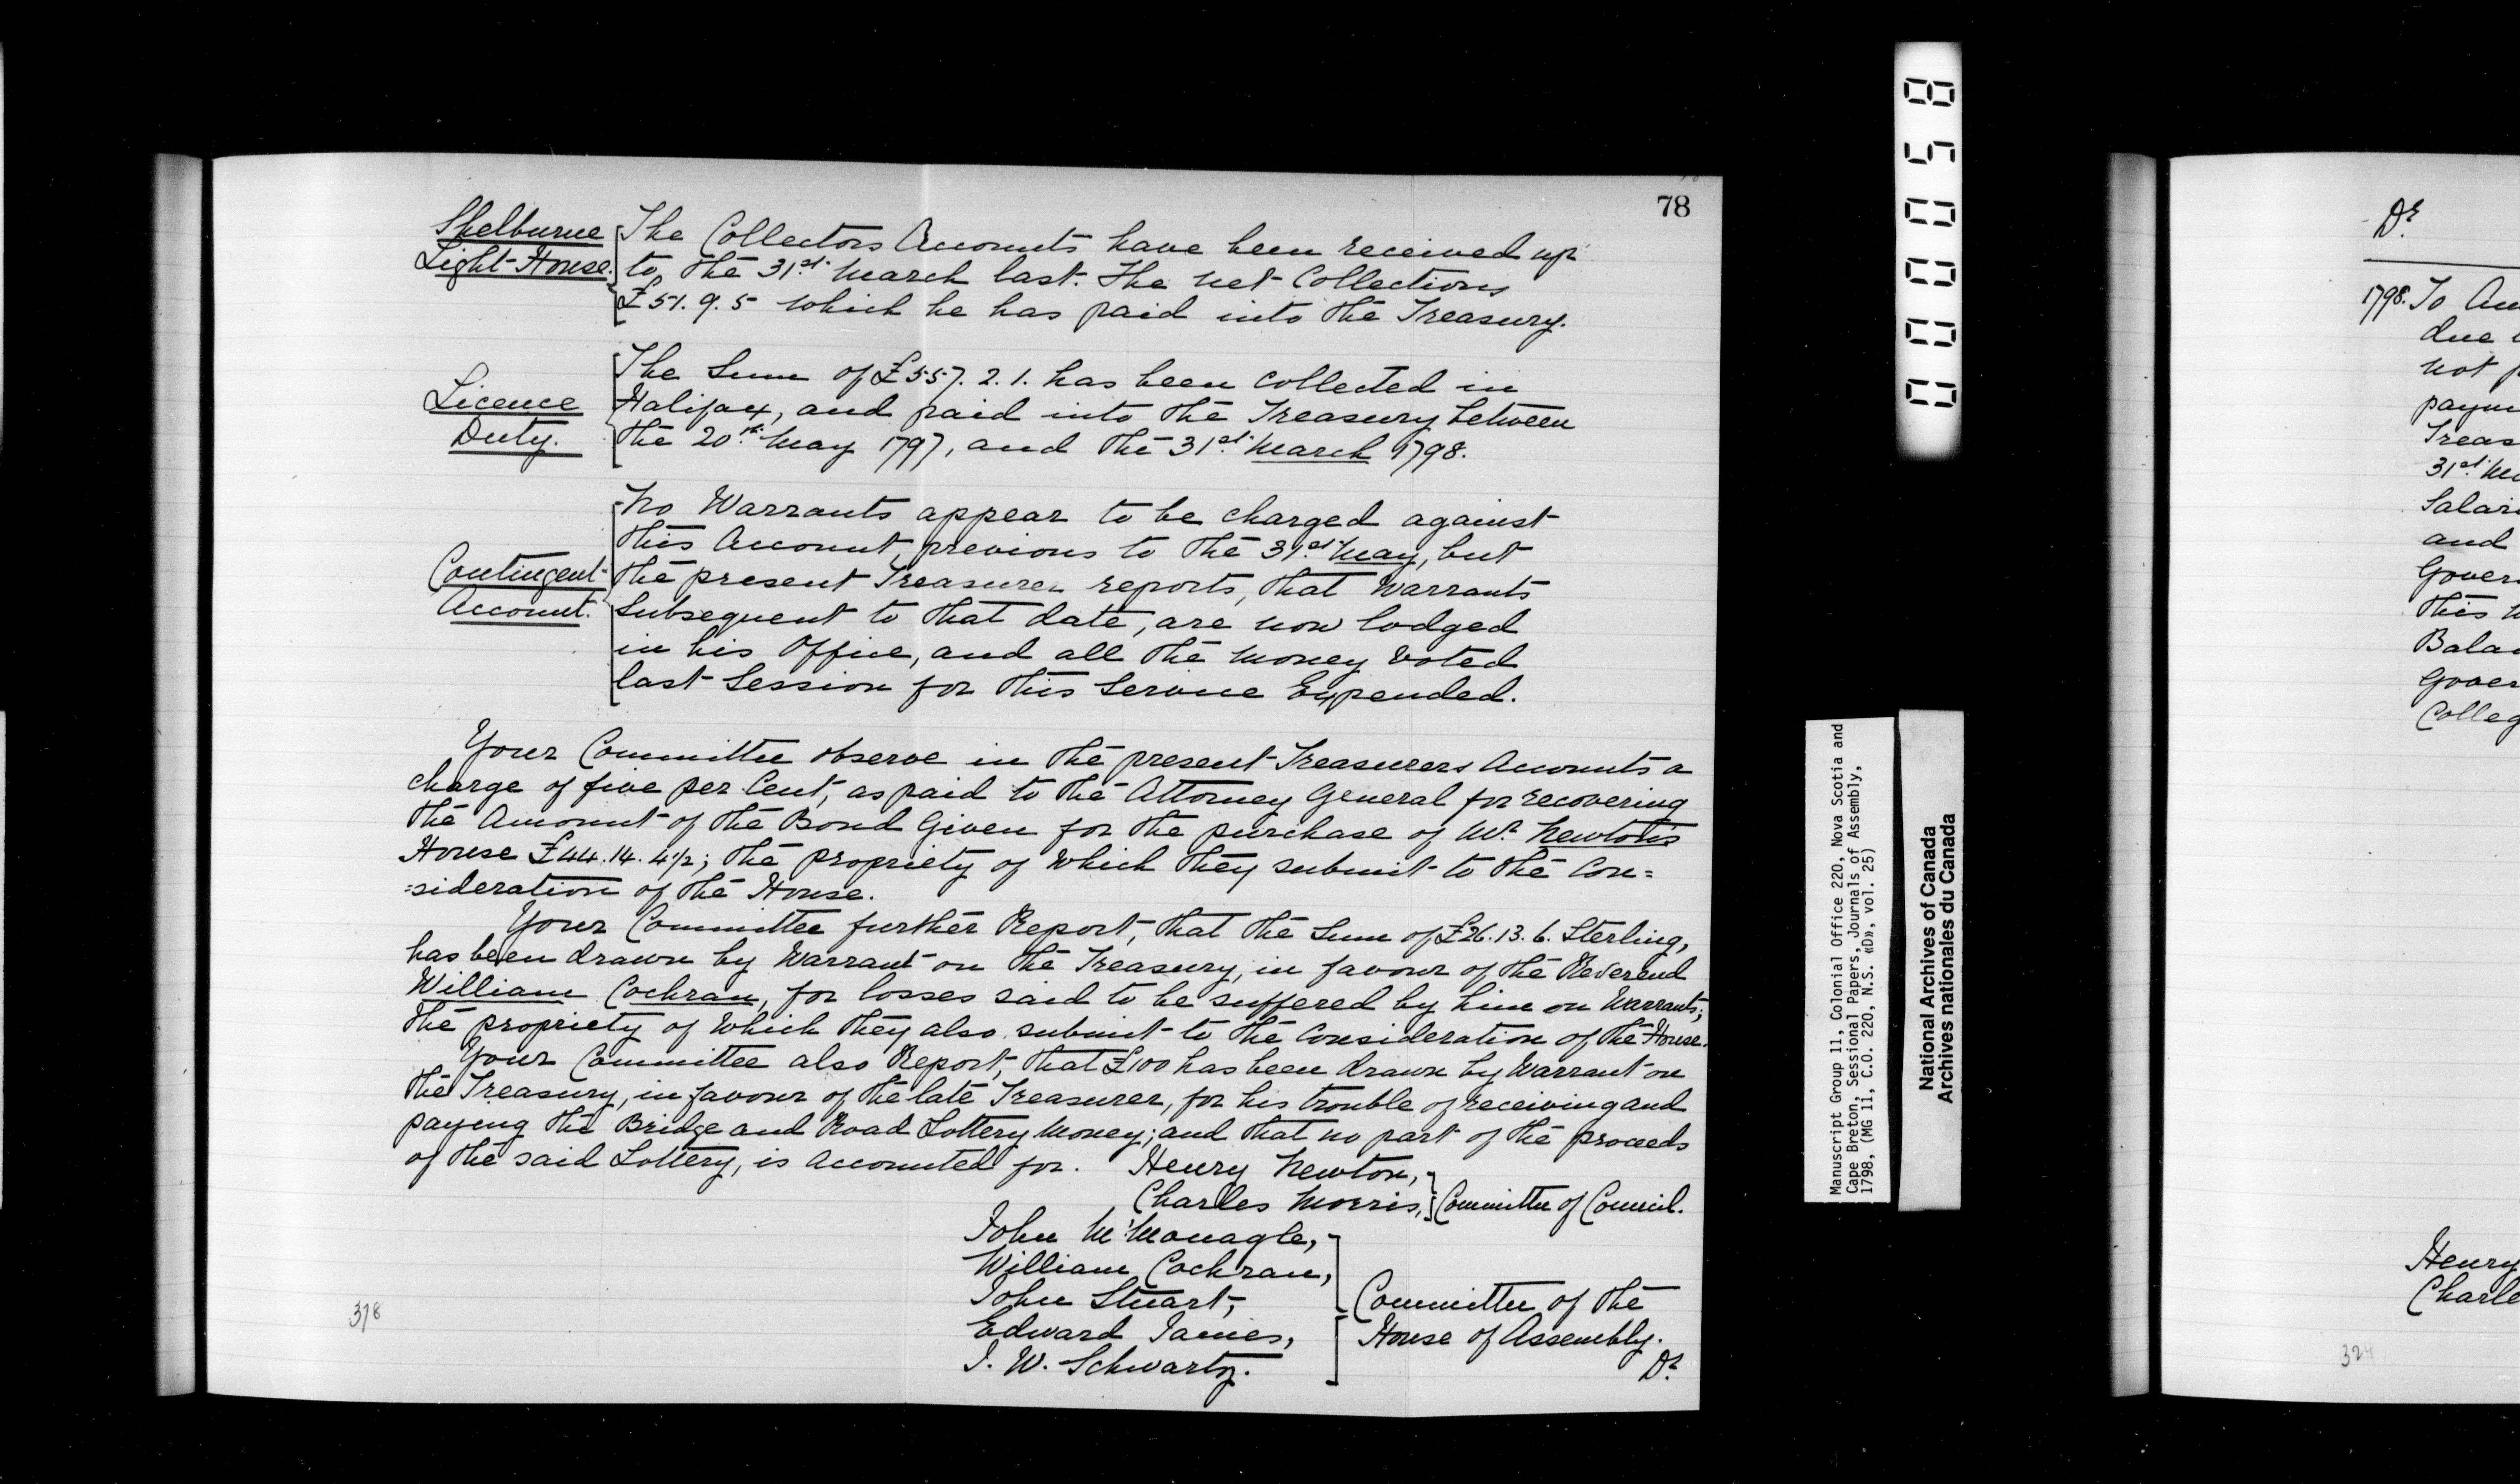 78
Shelburne
Light-House.
The Collectors Accounts have been received up
to, the 31st. March last. The net Collections
£51. 9. 5 which he has paid into the Treasury.
Licence
Duty.
The Sum of £557. 2. 1. has been collected in
Halifax, and paid into the Treasury between
the 20th. May 1797, and the 31st. March 1798.
Contingent
Account.
No Warrants appear to be charged against
this Account, previous to the 31st. May, but
the present Treasurer reports, that Warrants
Subsequent to that date, are now lodged
in his Office, and all the money Voted
last Session for this Service Expended.
Your Committee observe in the present Treasurers Accounts a
charge of five per Cent, as paid to the Attorney General for recovering
the Amount of the Bond Given for the purchase of Mr. Newton's
House £44. 14. 4½; the propriety of which they submit to the Con=
=sideration of the House.
Your Committee further Report, that the Sum of £26. 13. 6. Sterling,
has been drawn by Warrant on the Treasury, in favour of the Reverend
William Cochran, for losses said to be suffered by him on Warrants;
the propriety of which they also submit to the Consideration of the House.
Your Committee also Report, that £100 has been drawn by Warrant on
the Treasury, in favour of the late Treasurer, for his trouble of receiving and
paying the Bridge and Road Lottery Money; and that no part of the proceeds
of the said Lottery, is Accounted for.
Henry Newton,
Charles Morris,
Committee of Council.
John McMonagle,
William Cochran,
John Stuart,
Edward James,
J. W. Schwartz.
Committee of the
House of Assembly.
Dr.
378
000058
Manuscript Group 11, Colonial Office 220, Nova Scotia and
Cape Breton, Sessional Papers, Journals of Assembly,
1798, (MG 11, C.O. 220, N.S. «D», vol. 25)
National Archives of Canada
Archives nationales du Canada
Dr
1798. To
due
not
31st.
and
this
Henry
324